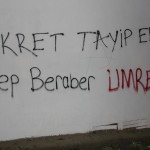 KRET TAYİP E
ep Beraber ÜMRE